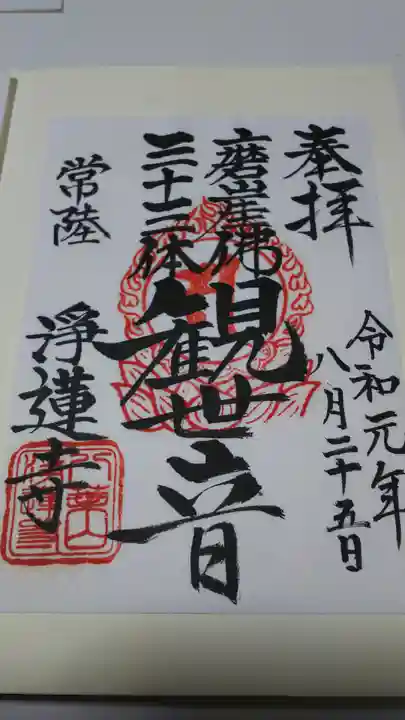 奉拝
令和元年
八月二十五日
磨崖佛
三十三体
観世音
常陸
浄蓮寺